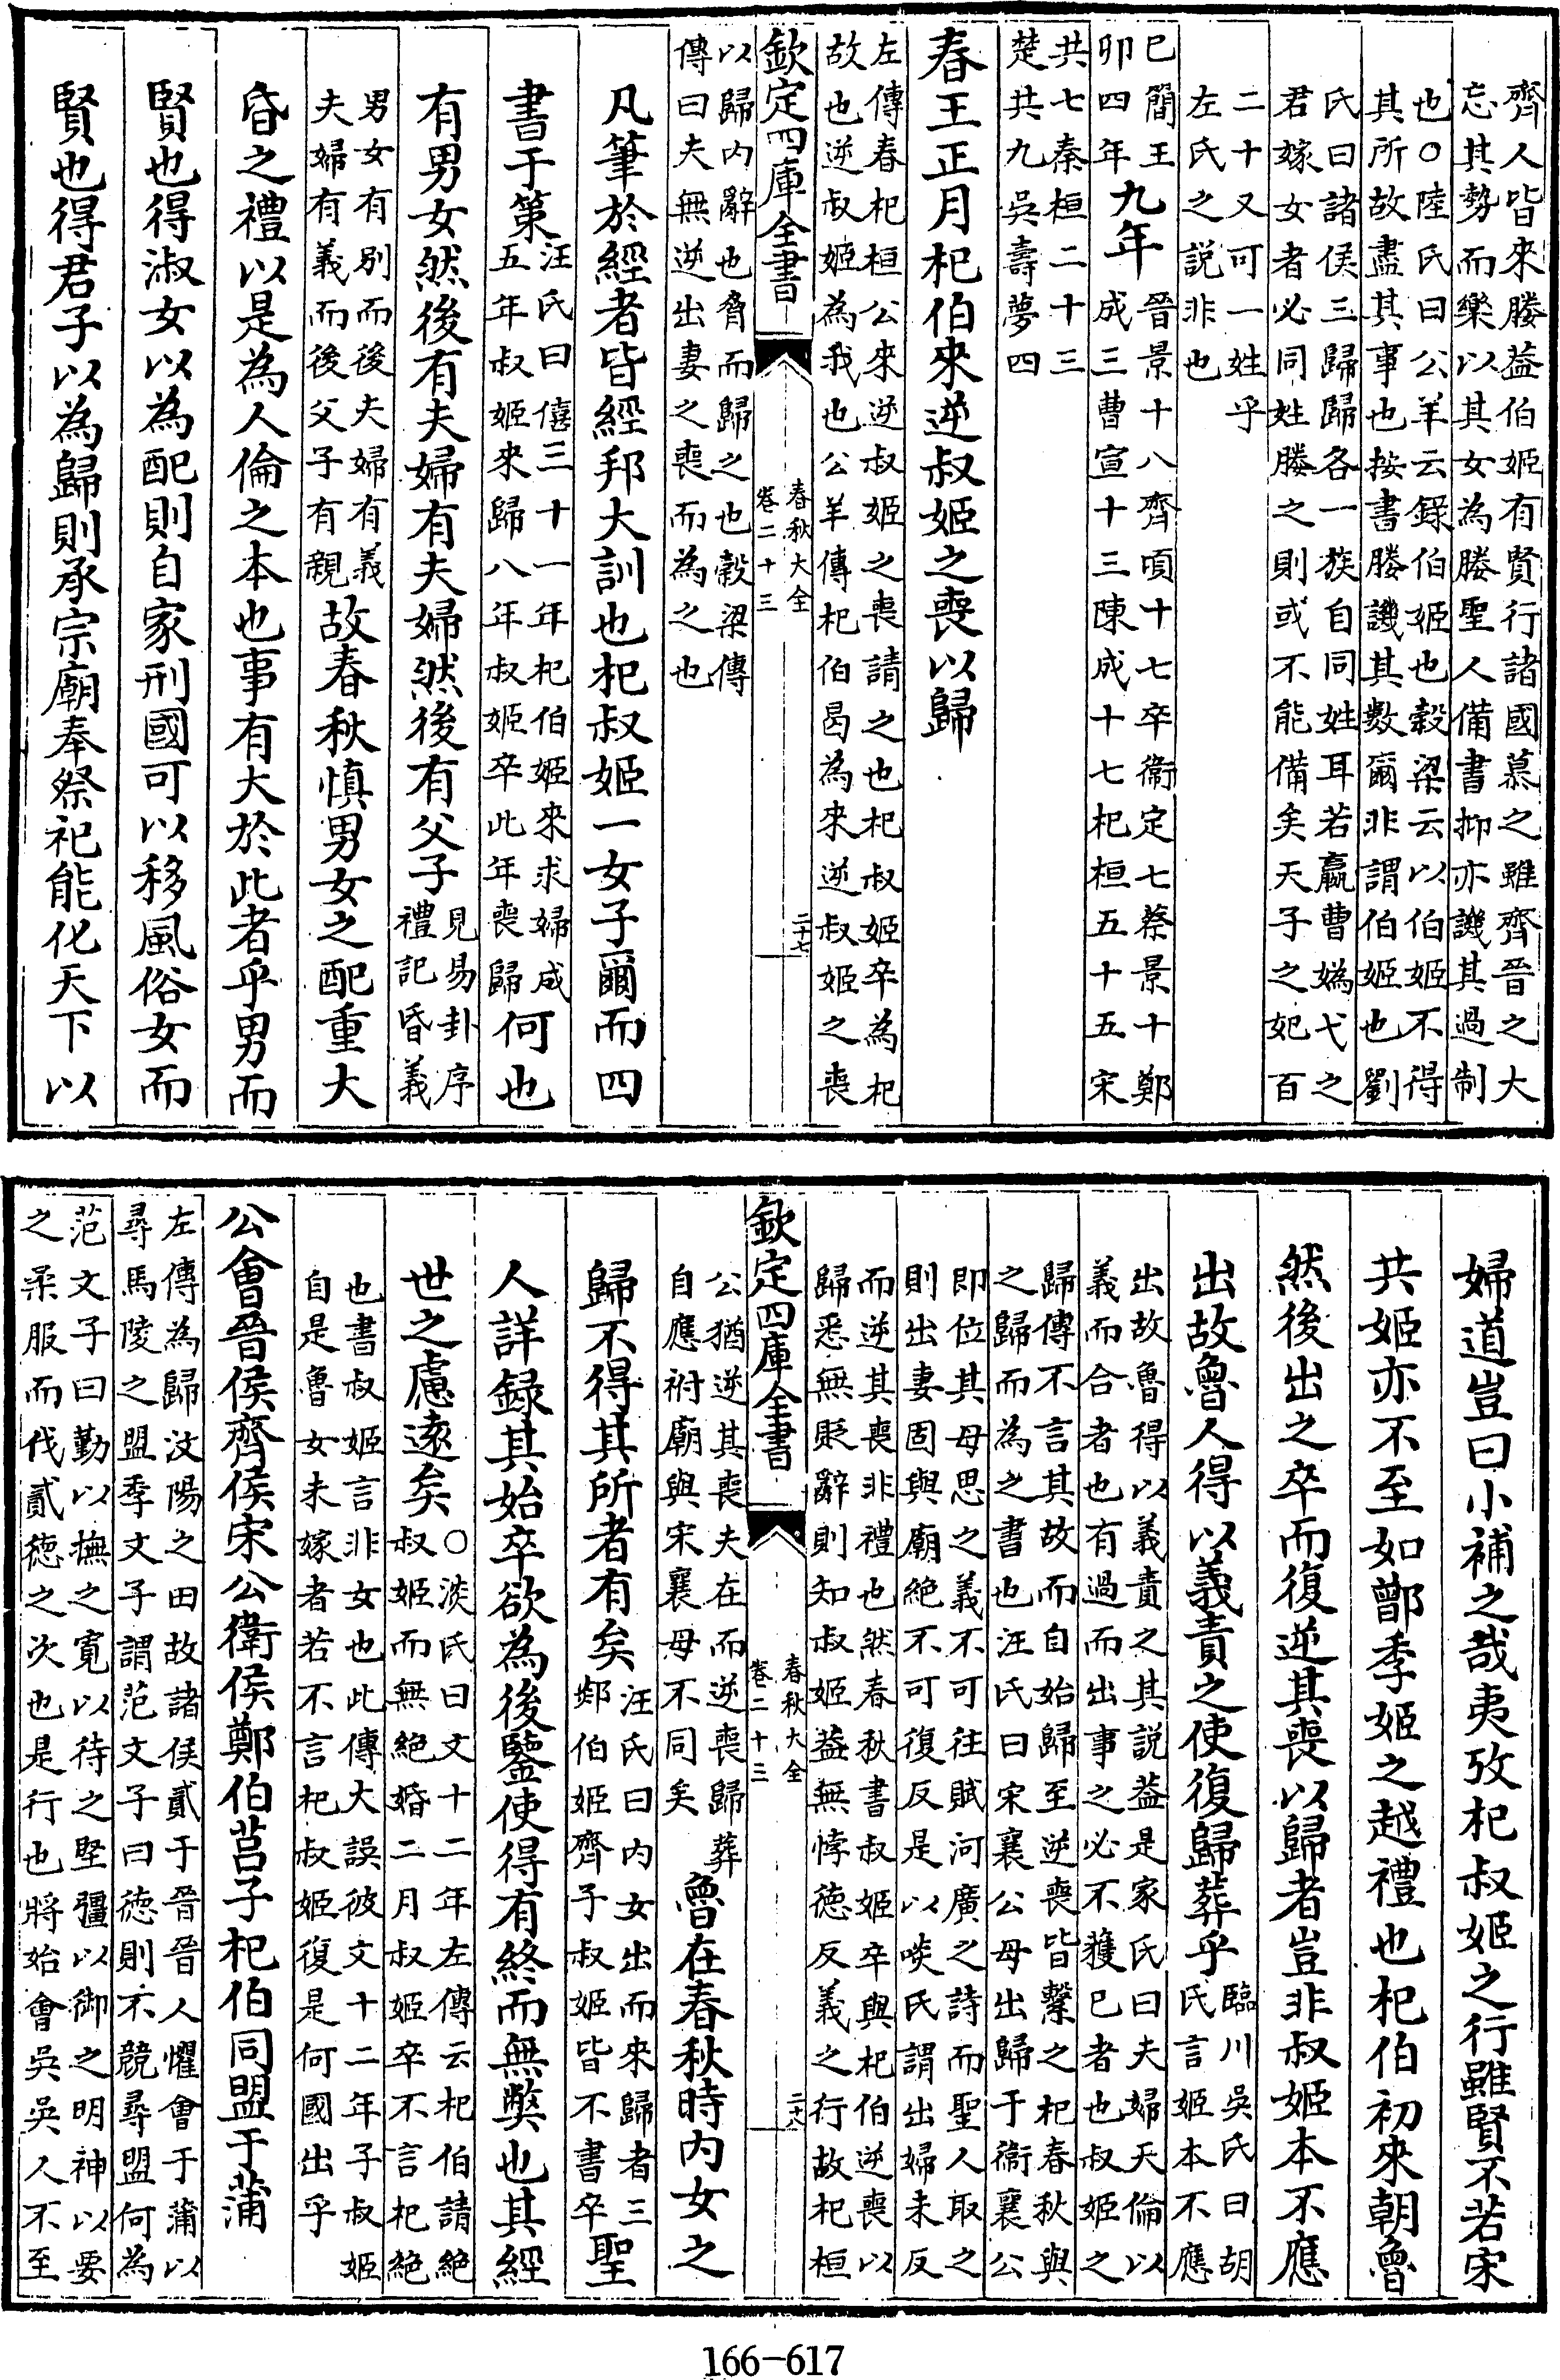 齊人皆來媵益伯姬有賢行諸國慕之雖齊晉之大
忘其勢而樂以其女為媵聖人備書抑亦譏其過制
也○陸氏曰公羊云録伯姬也穀梁云以伯姬不得
其所故盡其事也按書媵譏其數爾非謂伯姬也劉
氏曰諸侯三歸歸各一族自同姓耳若嬴曹媯弋之
君嫁女者必同姓媵之則或不能備矣天子之妃百
二十又可一姓乎
左氏之説非也
巳簡王
卯四年
九年
晉景十八齊頃十七卒衞定七蔡景十鄭
成三曹宣十三陳成十七杞桓五十五宋
共七秦桓二十三
楚共九吳壽夢四
春王正月杞伯來逆叔姬之喪以歸
左傳春杞桓公來逆叔姬之喪請之也杞叔姬卒為杞
故也逆叔姬為我也公羊傳杞伯曷為來逆叔姬之喪
欽定四庫全書
春秋大全
卷二十三
二十七
以歸内辭也脅而歸之也穀梁傳
傳曰夫無逆出妻之喪而為之也
凡筆於經者皆經邦大訓也杞叔姬一女子爾而四
書于策
汪氏曰僖三十一年杞伯姬來求婦成
五年叔姬來歸八年叔姬卒此年喪歸
何也
有男女然後有夫婦有夫婦然後有父子
見易卦序
禮記昏義
男女有别而後夫婦有義
夫婦有義而後父子有親
故春秋慎男女之配重大
昏之禮以是為人倫之本也事有大於此者乎男而
賢也得淑女以為配則自家刑國可以移風俗女而
賢也得君子以為歸則承宗廟奉祭祀能化天下以
婦道豈曰小補之哉夷攷杞叔姬之行雖賢不若宋
共姬亦不至如鄫季姬之越禮也杞伯初來朝魯
然後出之卒而復逆其喪以歸者豈非叔姬本不應
出故魯人得以義責之使復歸葬乎
臨川吳氏曰胡
氏言姬本不應
出故魯得以義責之其説益是家氏曰夫婦天倫以
義而合者也有過而出事之必不獲已者也叔姬之
歸傳不言其故而自始歸至逆喪皆繫之杞春秋與
之歸而為之書也汪氏曰宋襄公母出歸于衞襄公
即位其母思之義不可往賦河廣之詩而聖人取之
則出妻固與廟絶不可復反是以啖氏謂出婦未反
而逆其喪非禮也然春秋書叔姬卒與杞伯逆喪以
歸悉無貶辭則知叔姬益無悖徳反義之行故杞桓
欽定四庫全書
春秋大全
卷二十三
二十八
公猶逆其喪夫在而逆喪歸葬
自應祔廟與宋襄母不同矣
魯在春秋時内女之
歸不得其所者有矣
汪氏曰内女出而來歸者三
郯伯姬齊子叔姬皆不書卒
聖
人詳録其始卒欲為後鑒使得有終而無獘也其經
世之慮遠矣
○淡氏曰文十二年左傳云杞伯請絶
叔姬而無絶婚二月叔姬卒不言杞絶
也書叔姬言非女也此傳大誤彼文十二年子叔姬
自是魯女未嫁者若不言杞叔姬復是何國出乎
公會晉侯齊侯宋公衛侯鄭伯莒子杞伯同盟于蒲
左傳為歸汶陽之田故諸侯貳于晉晉人懼會于蒲以
尋馬陵之盟季文子謂范文子曰徳則不競尋盟何為
范文子曰勤以撫之寛以待之堅彊以御之明神以要
之柔服而伐貳徳之次也是行也將始會吳吳人不至
166-617